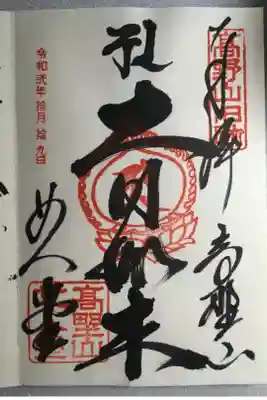 奉拝 高野山
大日如来
女人堂
令和弐年拾月拾九日